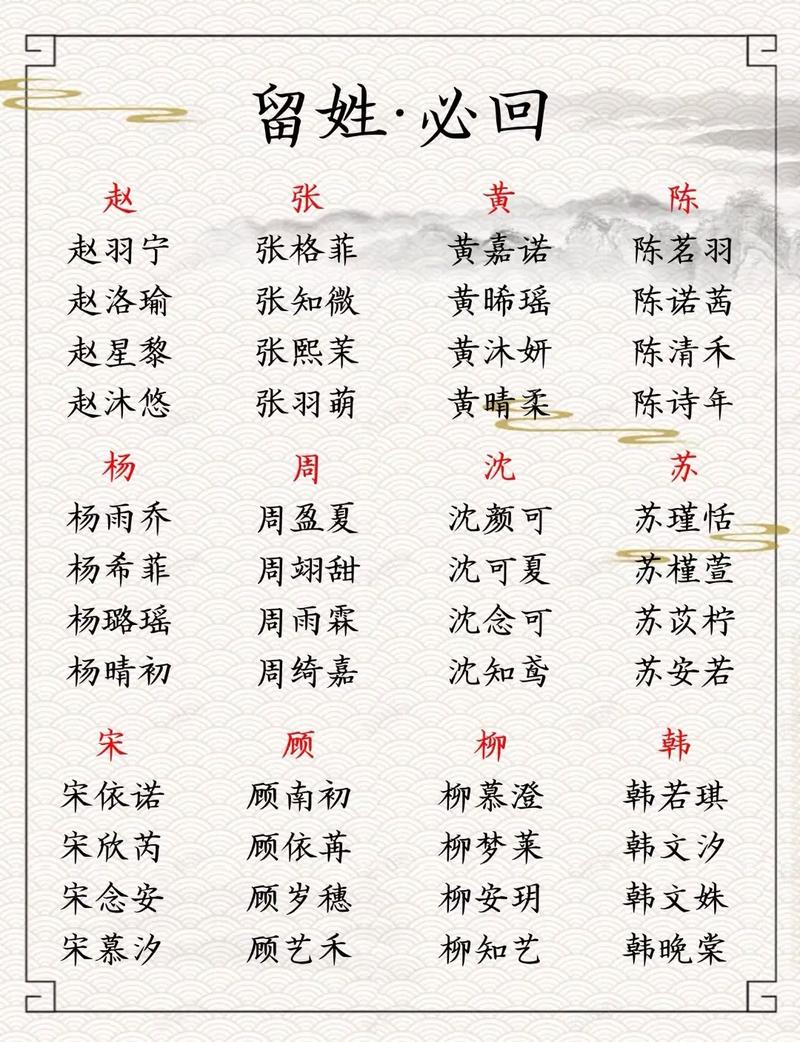 留姓·必回
赵 张 黄 陈
赵羽宁 张格菲 黄嘉诺 陈茗羽
赵洛瑜 张知微 黄晞瑶 陈诺茜
赵星黎 张熙茉 黄沐妍 陈清禾
赵沐悠 张羽萌 黄晴柔 陈诗年
杨 周 沈 苏
杨雨乔 周盈夏 沈颜可 苏瑾恬
杨希菲 周翊甜 沈可夏 苏槿萱
杨璐瑶 周雨霖 沈念可 苏苡柠
杨晴初 周绮嘉 沈知鸢 苏安若
宋 顾 柳 韩
宋依诺 顾南初 柳慕澄 韩若琪
宋欣芮 顾依苒 柳梦莱 韩文汐
宋念安 顾岁穗 柳安玥 韩文姝
宋慕汐 顾艺禾 柳知艺 韩晚棠